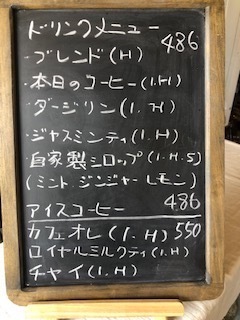 ドリンクメニュー
・ブレンド(H) 486
・本日のコーヒー(I.H)
・ダージリン(I.H)
・ジャスミンティ(I.H)
・自家製シロップ(I.H.S)
(ミント.ジンジャー レモン)
アイスコーヒー 486
カフェオレ(I.H) 550
ロイヤルミルクティ(I.H)
チャイ(I.H)